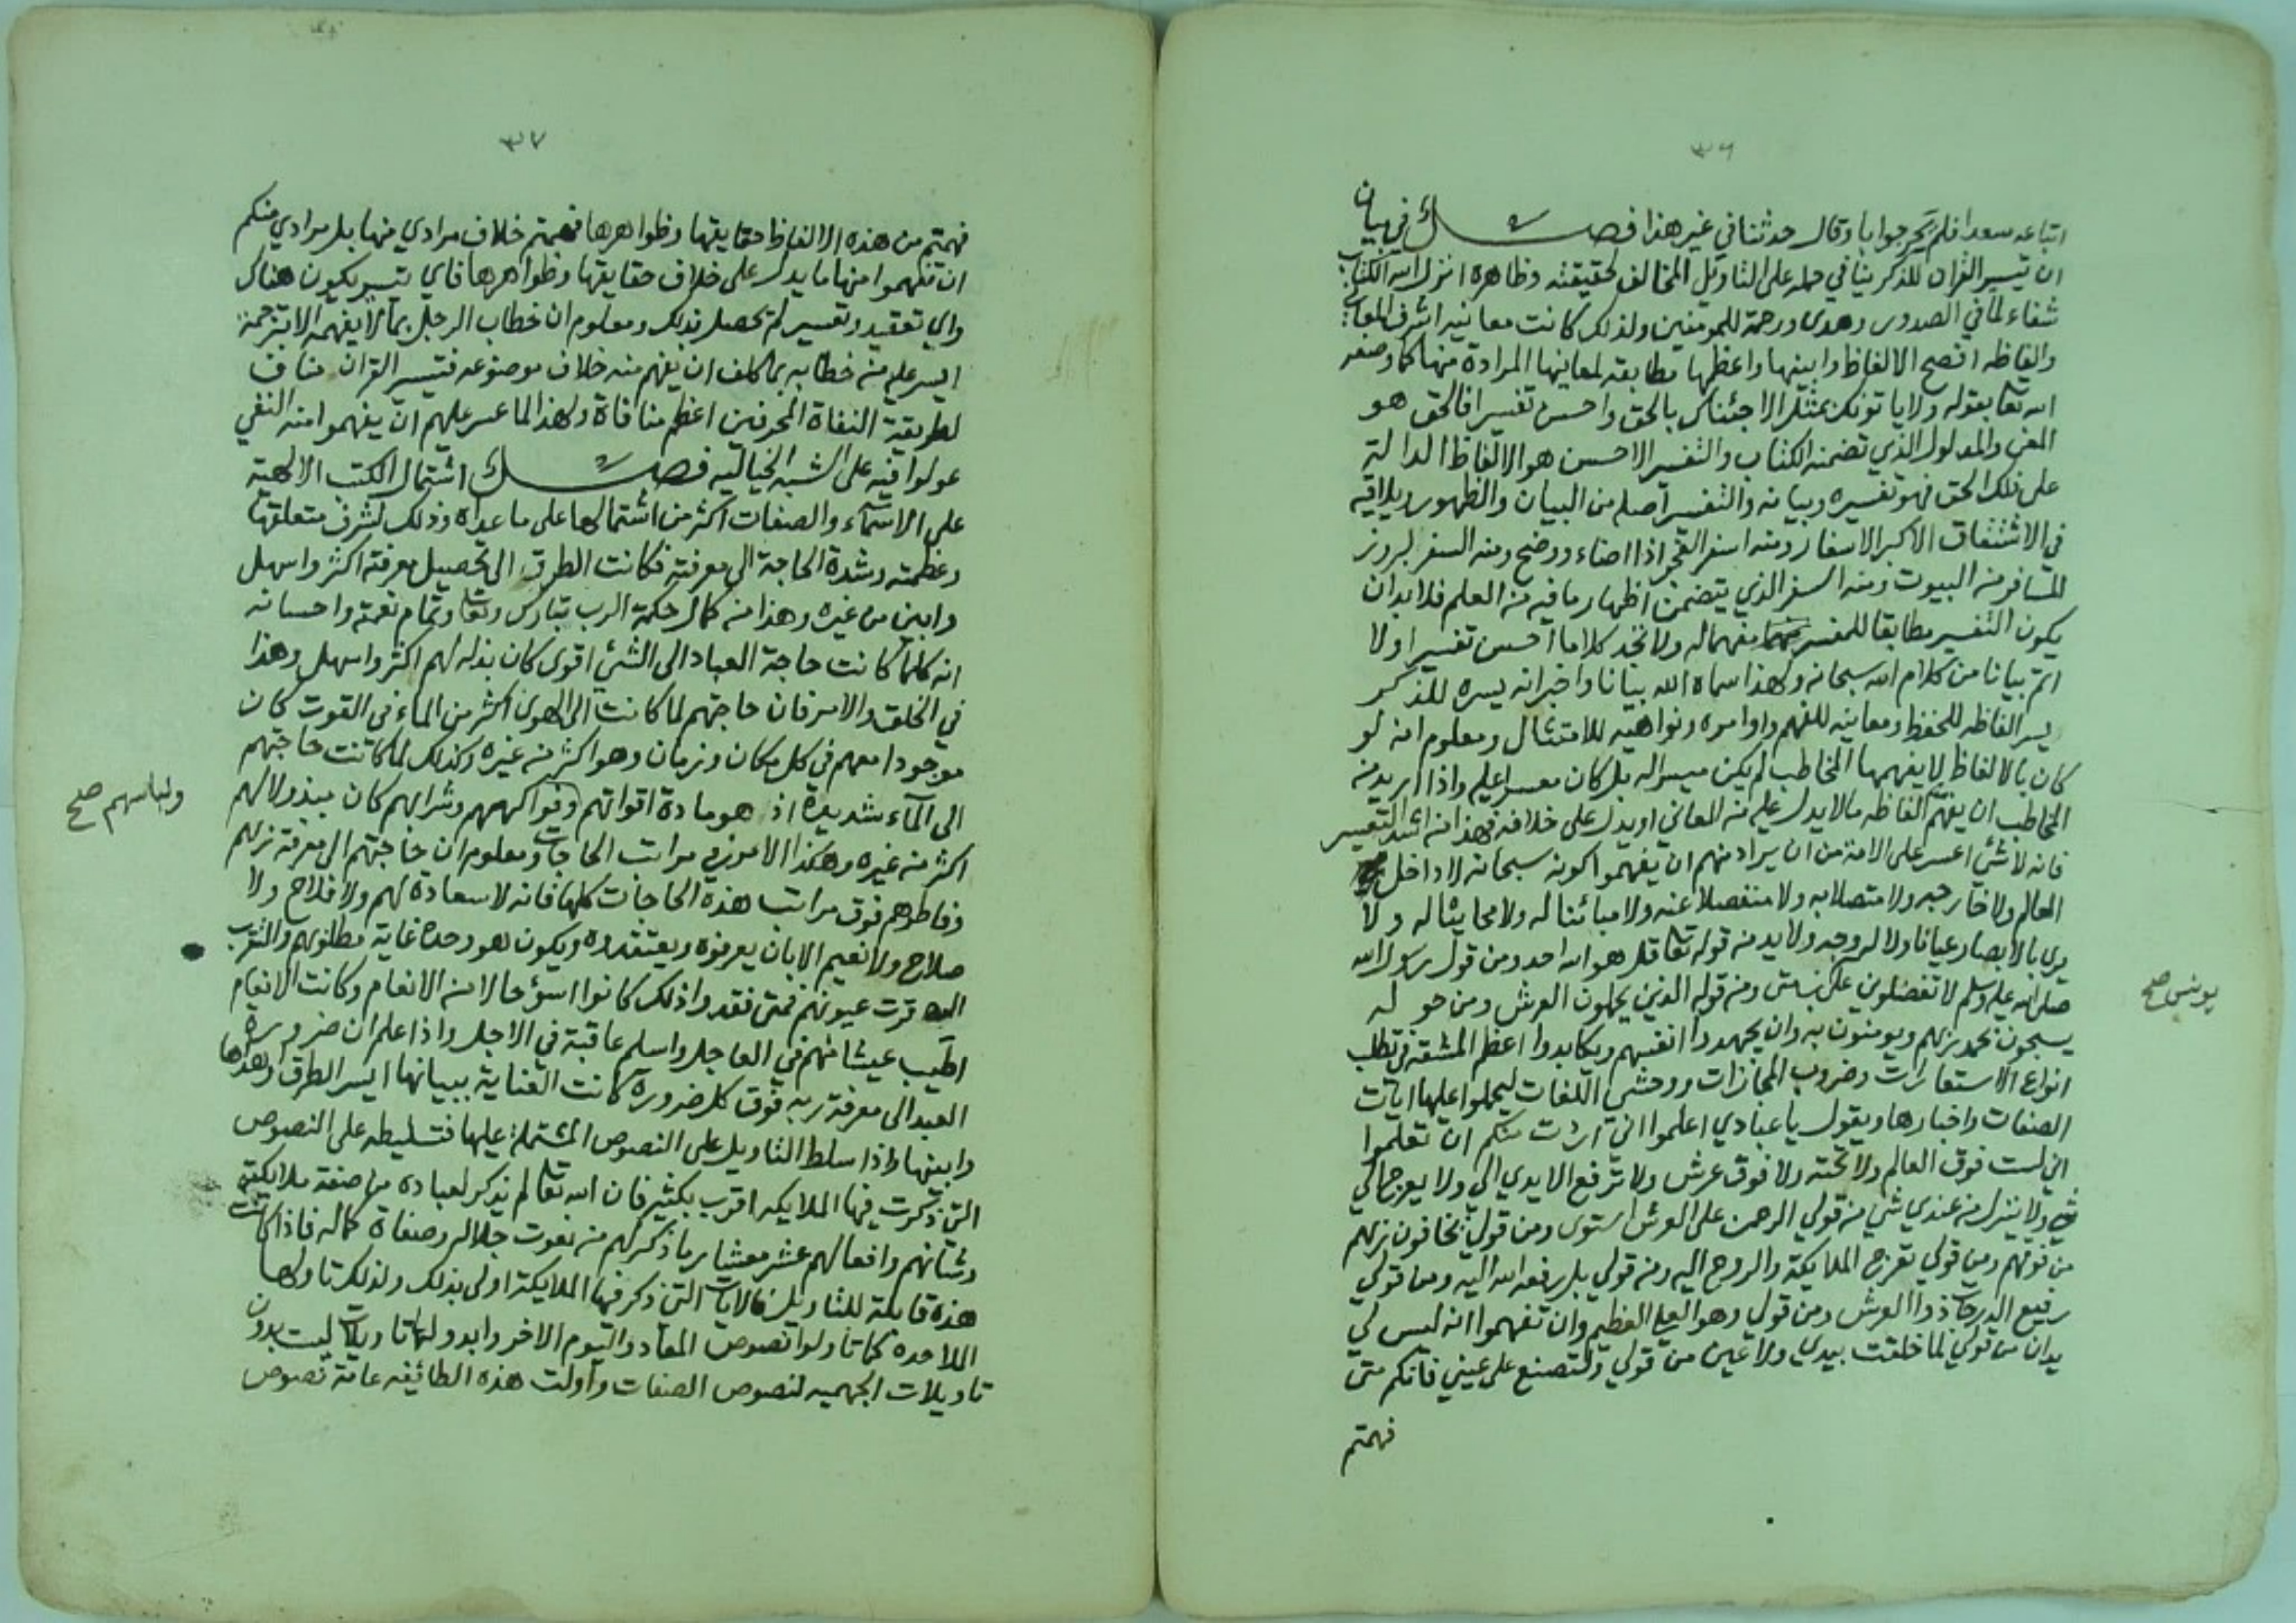 ٣٦
اتباعه سعدا فلم يحر جوابا وقال حدثنا في غير هذا فصل في بيان
ان تيسير القران للذكر ينافي حمله على التاويل المخالف لحقيقته وظاهره انزل الله الكتاب
شفاء لما في الصدور وهدى ورحمة للمومنين ولذلك كانت معانيه اشرف المعاني
والفاظه افصح الالفاظ وابينها واعظمها مطابقة لمعانيها المرادة منها كما وصفه
الله تعا بقوله ولا ياتونك بمثل الا جئناك بالحق واحسن تفسيرا فالحق هو
المعنى والمدلول الذي تضمنه الكتاب والتفسير الاحسن هو الالفاظ الدالة
على ذلك الحق فهو تفسيره وبيانه والتفسير اصله من البيان والظهور ويلاقيه
في الاشتقاق الاكبر الاسفار ومنه اسفر الفجر اذا اضاء ووضح ومنه السفر لبروز
المسافر من البيوت ومنه السفر الذي يتضمن اظهار ما فيه من العلم فلا بد ان
يكون التفسير مطابقا للمفسر مفهما له ولا تجد كلاما احسن تفسيرا ولا
اتم بيانا من كلام الله سبحانه ولهذا سماه الله بيانا واخبر انه يسره للذكر
يسر الفاظه للحفظ ومعانيه للفهم واوامره ونواهيه للامتثال ومعلوم انه لو
كان بالالفاظ لا يفهمها المخاطب لم يكن ميسرا له بل كان معسرا عليه واذا اريد من
المخاطب ان يفهم الفاظه ما لا يدل عليه من المعاني او يدل على خلافه فهذا من اشد التعسير
فانه لا شئ اعسر على الامة من ان يراد منهم ان يفهموا كونه سبحانه لا داخل
العالم ولا خارجه ولا متصلا به ولا منفصلا عنه ولا مبائنا له ولا محايثا له ولا
يرى بالابصار عيانا ولا له وجه ولا يد من قوله تعا قل هو الله احد ومن قول رسول الله
صلى الله عليه وسلم لا تفضلوني على ومن قوله الذين يحملون العرش ومن حوله
يونس صح
يسبحون بحمد ربهم ويومنون به وان يجهدوا انفسهم ويكابدوا اعظم المشقة في تطلب
انواع الاستعارات وضروب المجازات ووحشي اللغات ليحملوا عليها ايات
الصفات واخبارها ويقول يا عبادي اعلموا اني اردت منكم ان تعلموا
اني لست فوق العالم ولا تحته ولا فوق عرش ولا ترفع الايدي الي ولا يعرج الي
شي ولا ينزل من عندي شي من قولي الرحمن على العرش استوى ومن قولي يخافون ربهم
من فوقهم ومن قولي تعرج الملايكة والروح اليه ومن قولي بل رفعه الله اليه ومن قولي
رفيع الدرجات ذوا العرش ومن قولي وهو العلي العظيم وان تفهموا انه ليس لي
يدان من قولي لما خلقت بيدي ولا عين من قولي ولتصنع على عيني فانكم متى
فهمتم
٣٧
فهمتم من هذه الالفاظ حقايقها وظواهرها فهمتم خلاف مرادي منها بل مرادي منكم
ان تفهموا منها ما يدل على خلاف حقايقها وظواهرها فاي تيسير يكون هناك
واي تعقيد وتعسير لم يحصل بذلك ومعلوم ان خطاب الرجل بما لا يفهمه الا بترجمة
ايسر عليه من خطابه بما كلف ان يفهم منه خلاف موضوعه فتيسير القران مناف
لطريقة النفاة المحرفين اعظم منافاة ولهذا لما عسر عليهم ان يفهموا منه النفي
عولوا فيه على الشبه الخياليه فصل اشتمال الكتب الالهية
على الاسماء والصفات اكثر من اشتمالها على ما عداه وذلك لشرف متعلقها
وعظمته وشدة الحاجة الى معرفته فكانت الطرق الى تحصيل معرفته اكثر واسهل
وابين من غيره وهذا من كمال حكمة الرب تبارك وتعا وتمام نعمته واحسانه
انه كلما كانت حاجة العباد الى الشئ اقوى كان بذله لهم اكثر واسهل وهذا
في الخلق والامر فان حاجتهم لما كانت الى الهوى اكثر من الماء في القوت كان
موجودا معهم في كل مكان وزمان وهو اكثر من غيره وكذلك لما كانت حاجتهم
الى الماء شديدة اذ هو مادة اقواتهم وفواكههم وشرابهم كان مبذولا لهم
ولباسهم صح
اكثر من غيره وهكذا الامور في مراتب الحاجات ومعلوم ان حاجتهم الى معرفة ربهم
وفاطرهم فوق مراتب هذه الحاجات كلها فانه لا سعادة لهم ولا فلاح ولا
صلاح ولا نعيم الا بان يعرفوه ويعتقدوه ويكون هو وحده غاية مطلوبهم والتقرب
اليه قرت عيونهم فمتى فقدوا ذلك كانوا اسوء حالا من الانعام وكانت الانعام
اطيب عيشا منهم في العاجل واسلم عاقبة في الاجل واذا علم ان ضرورة
العبد الى معرفة ربه فوق كل ضرورة كانت العناية ببيانها ايسر الطرق واهداها
وابينها واذا سلط التاويل على النصوص المشتملة عليها فتسليطه على النصوص
التي ذكرت فيها الملايكه اقرب بكثير فان الله تعا لم يذكر لعباده من صفة ملايكته
وشانهم وافعالهم عشر معشار ما ذكر لهم من نعوت جلاله وصفاة كماله فاذا كانت
هذه قابلة للتاويل فالايات التي ذكر فيها الملايكة اولى بذلك ولذلك تاولها
الملاحده كما تاولوا نصوص المعاد واليوم الاخر وابدوا لها تاويلات ليست بدون
تاويلات الجهميه لنصوص الصفات واولت هذه الطائفه عامة نصوص